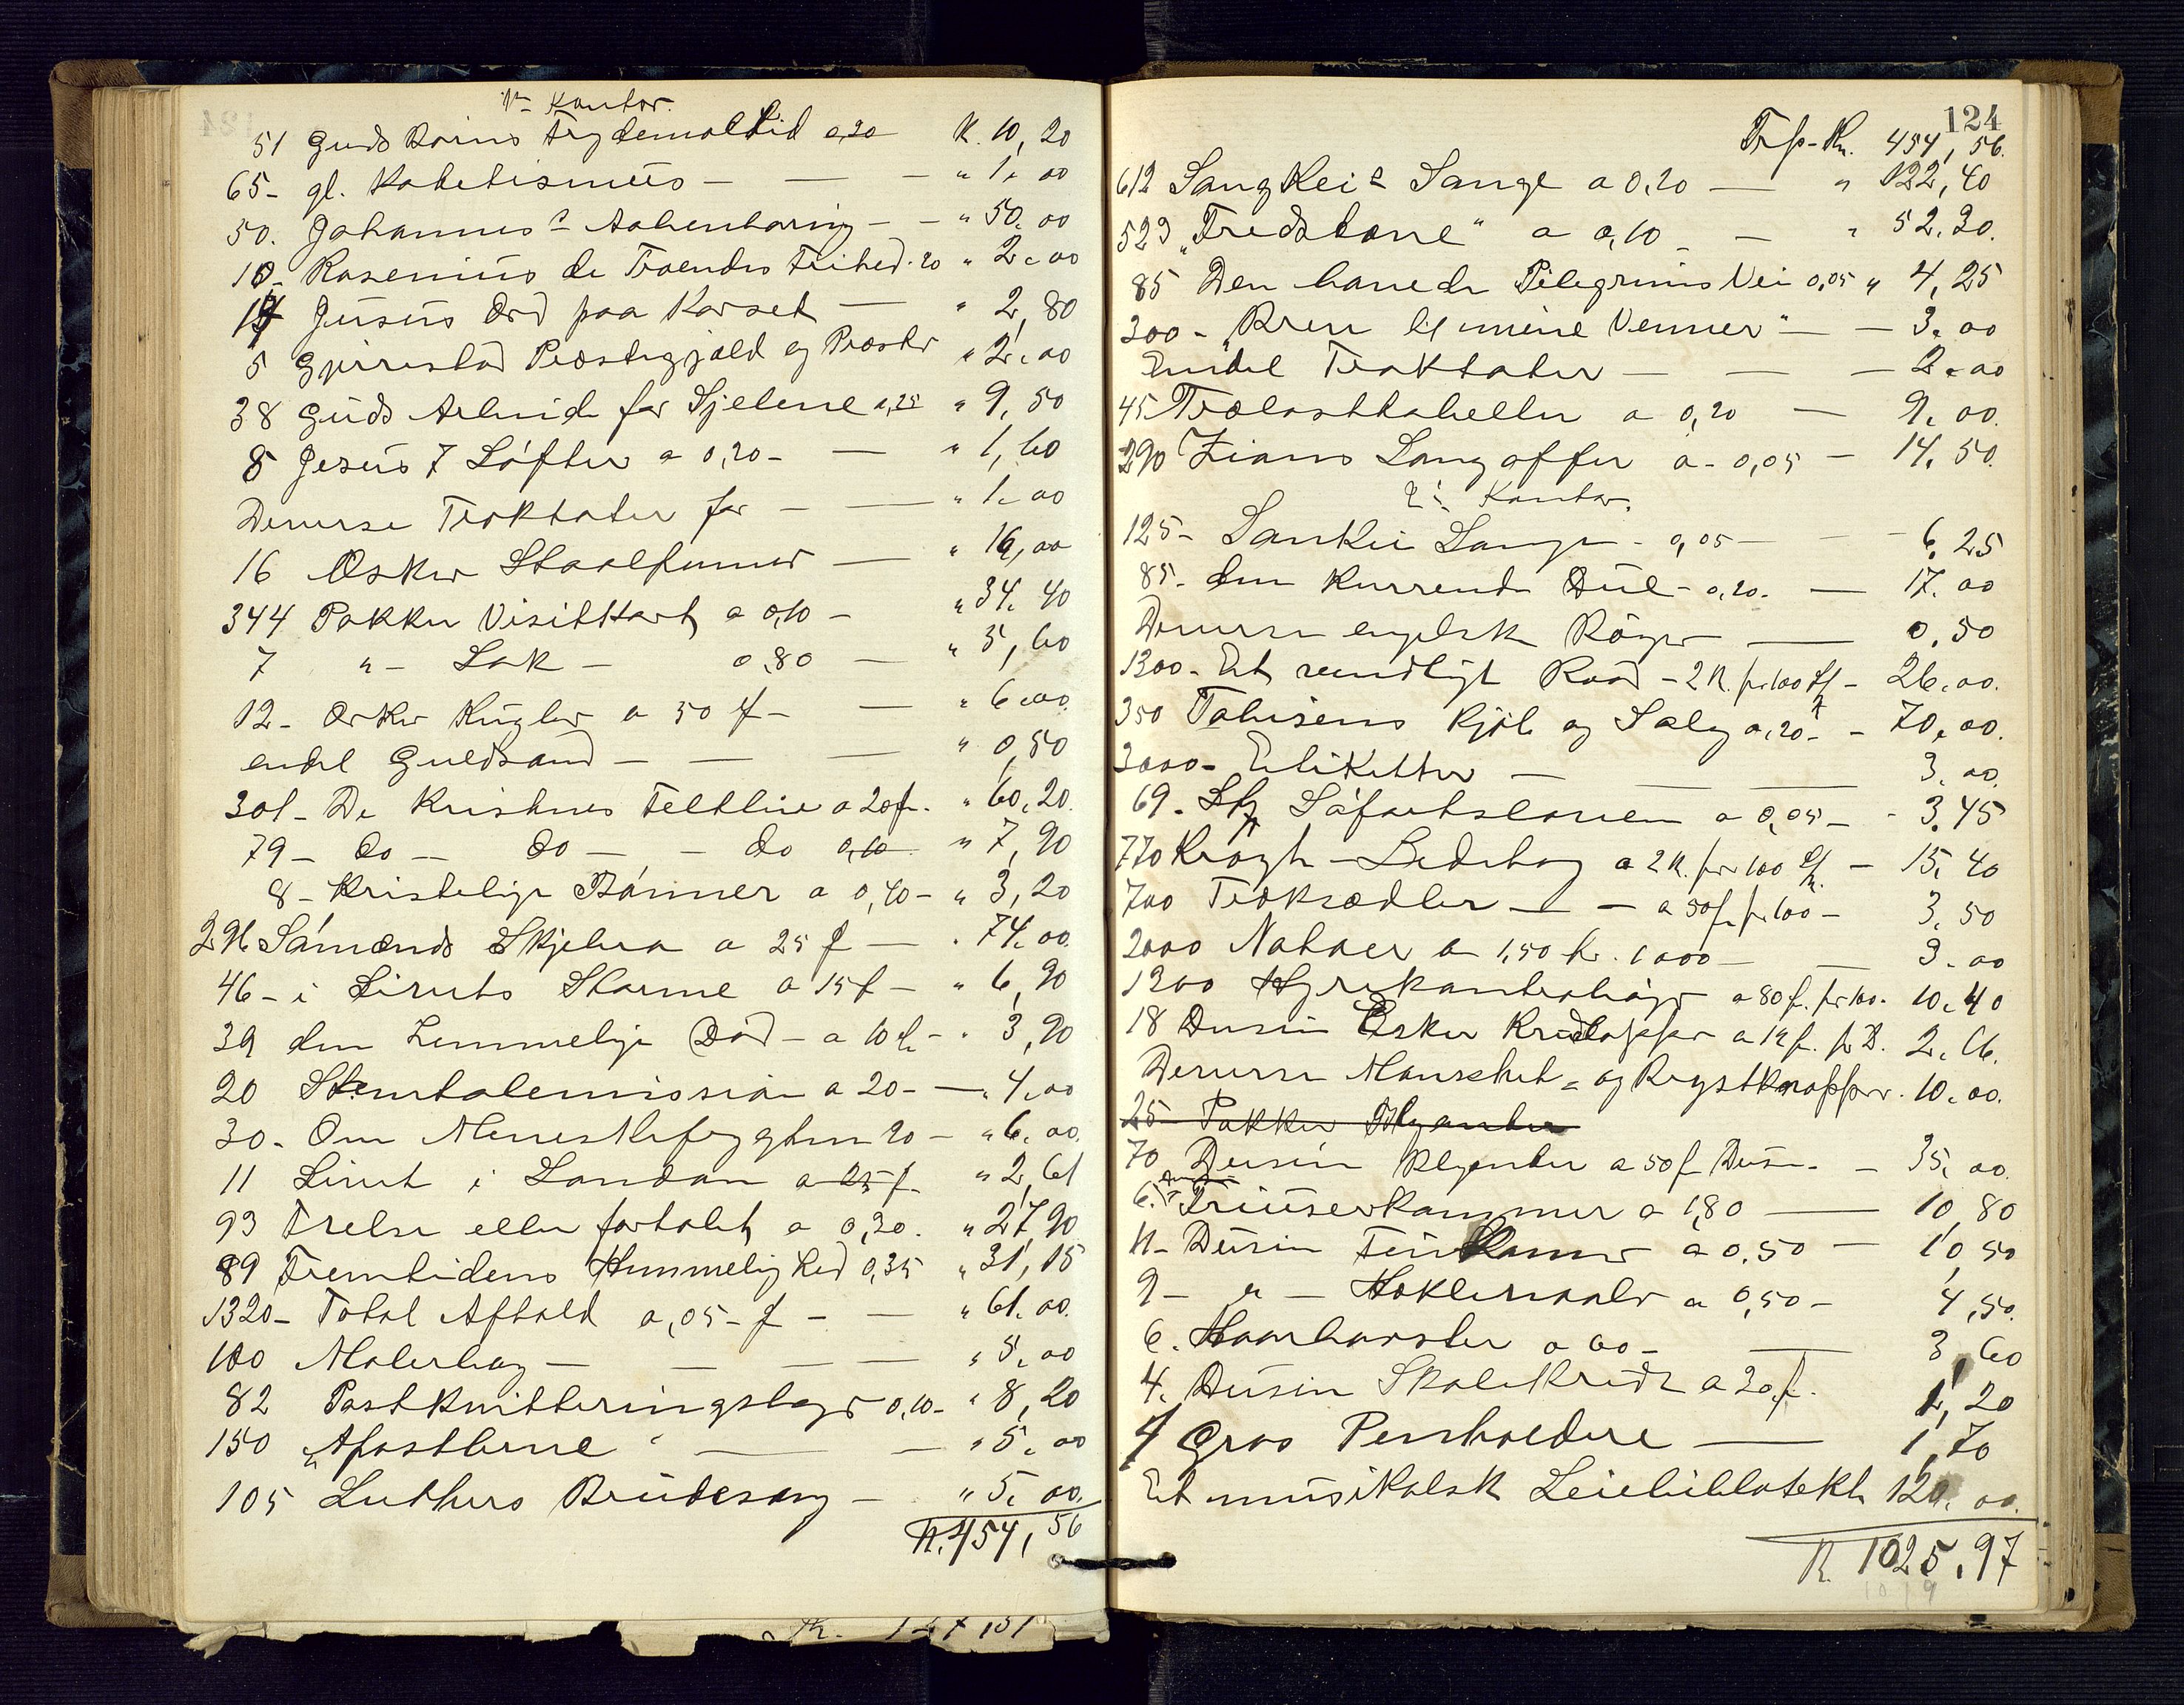 1ᵗᵉ Kontor.
51 Guds Barns Frydemaaltid 0,20 K. 10,20
65- gl. Katekismus — — — " 1,00
50. Johannes's Aabenbaring — — " 50,00
10- Rosenius de Troendes Frihed. 20 " 2,00
14 Jusus Ord paa Korset — " 2,80
5 Gjerrestad Præstegjæld og Præster " 2,00
38 Guds Arbeide for Sjelene 0,25 " 9,50
8 Jesus 7 Löfter a 0,20 - — " 1,60
Deverse Traktater for — — " 1,00
16 Æsker Staalpenner — " 16,00
344 Pakker Visitkort a 0,10 - " 34,40
7 " - Lak - 0,80 — " 5,60
12- Æsker Kugler a 50 f - — " 6,00
endel Guldsand — — — " 0,50
301- De Kristnes Feltlive a 20 f. " 60,20
79- do — do — - do 0,10 " 7,90
8- Kristelige Bönner a 0,40 - " 3,20
296 Sömænds Skjebne a 25 f — " 74,00
46- i Livets Storme a 15 f - " 6,90
39 den Lemmelige Död - a 10 f - " 3,90
20 Stentalemission a 20 - — " 4,00
30- Om Menneskefrygten 20 — " 6,00
11 Livet i London a 25 f. " 2,61
93 Frelse eller fortabt a 0,30. " 27,90
89 Fremtidens Hemmelighed 0,35 " 31,15
1320- Total Afhold a,05 - f - — " 61,00
100 Malerbog — — — — " 5,00
82 Postkvitteringsbøger 0,10 - " 8,20
150 "Apostlerne" — — " 5,00
105 Luthers Brudesang — " 5,00
K. 454,56
124
Trsp-Kr. 454,56
612 Sangkei's Sange a 0,20 — " 122,40
523 "Fredsbane" a 0,10 - — " 52,30
85 Den lanede Pilegrims Vei 0,05 " 4,25
300- "Brev til mine Venner" — — 3,00
Endel Traktater — — — 2,00
45 Trælasttabeller a 0,20 — 9,00
290 Zions Sangoffer a - 0,05 — 14,50
2ᵉ Kontor.
125- Sankei Sange - 0,05 — - 6,25
85- den Kurrende Due - 0,20. — 17,00
Deverse engelsk Böger — 0,50
1300- Et venligt Raad - 2 K. pr 100 St - 26,00
350 Tobisens Kjöb og Salg a,20 - - 70,00
3000- Etiketter — — 3,00
69- Stk Söfartsloven a 0,05 - - 3,45
770 Krogh - Bedebog a 2 K. pr 100 St - 15,40
700 Traksedler — — a 50 f pr 100 - 3,50
2000 Notaer a 1,50 kr. 1000 — — 3,00
1300 Hyrekontrabøger a 80 f. pr 100. 10,40
18 Dusin Esker Kridtopper a 12 f. pr D. 2,16
Deverse Manschet- og Brystknapper. 10,00
25 Pakker Blyanter
70 Dusin Blyanter a 50 f Dusin. - 35,00
6. Dusin Friuserkammer a 1,80 — 10,80
21- Dusin Finkamme a 0,50 - 10,50
9- " - Heklenaale a 0,50 - 4,50
6. Haarbørster a 60 - — 3,60
4. Dusin Skolekridt a 30 f. 1,20
4 Gros Penholdere — 1,70
Et musikalsk Leiebibliotekk 120,00
K. 1025,97